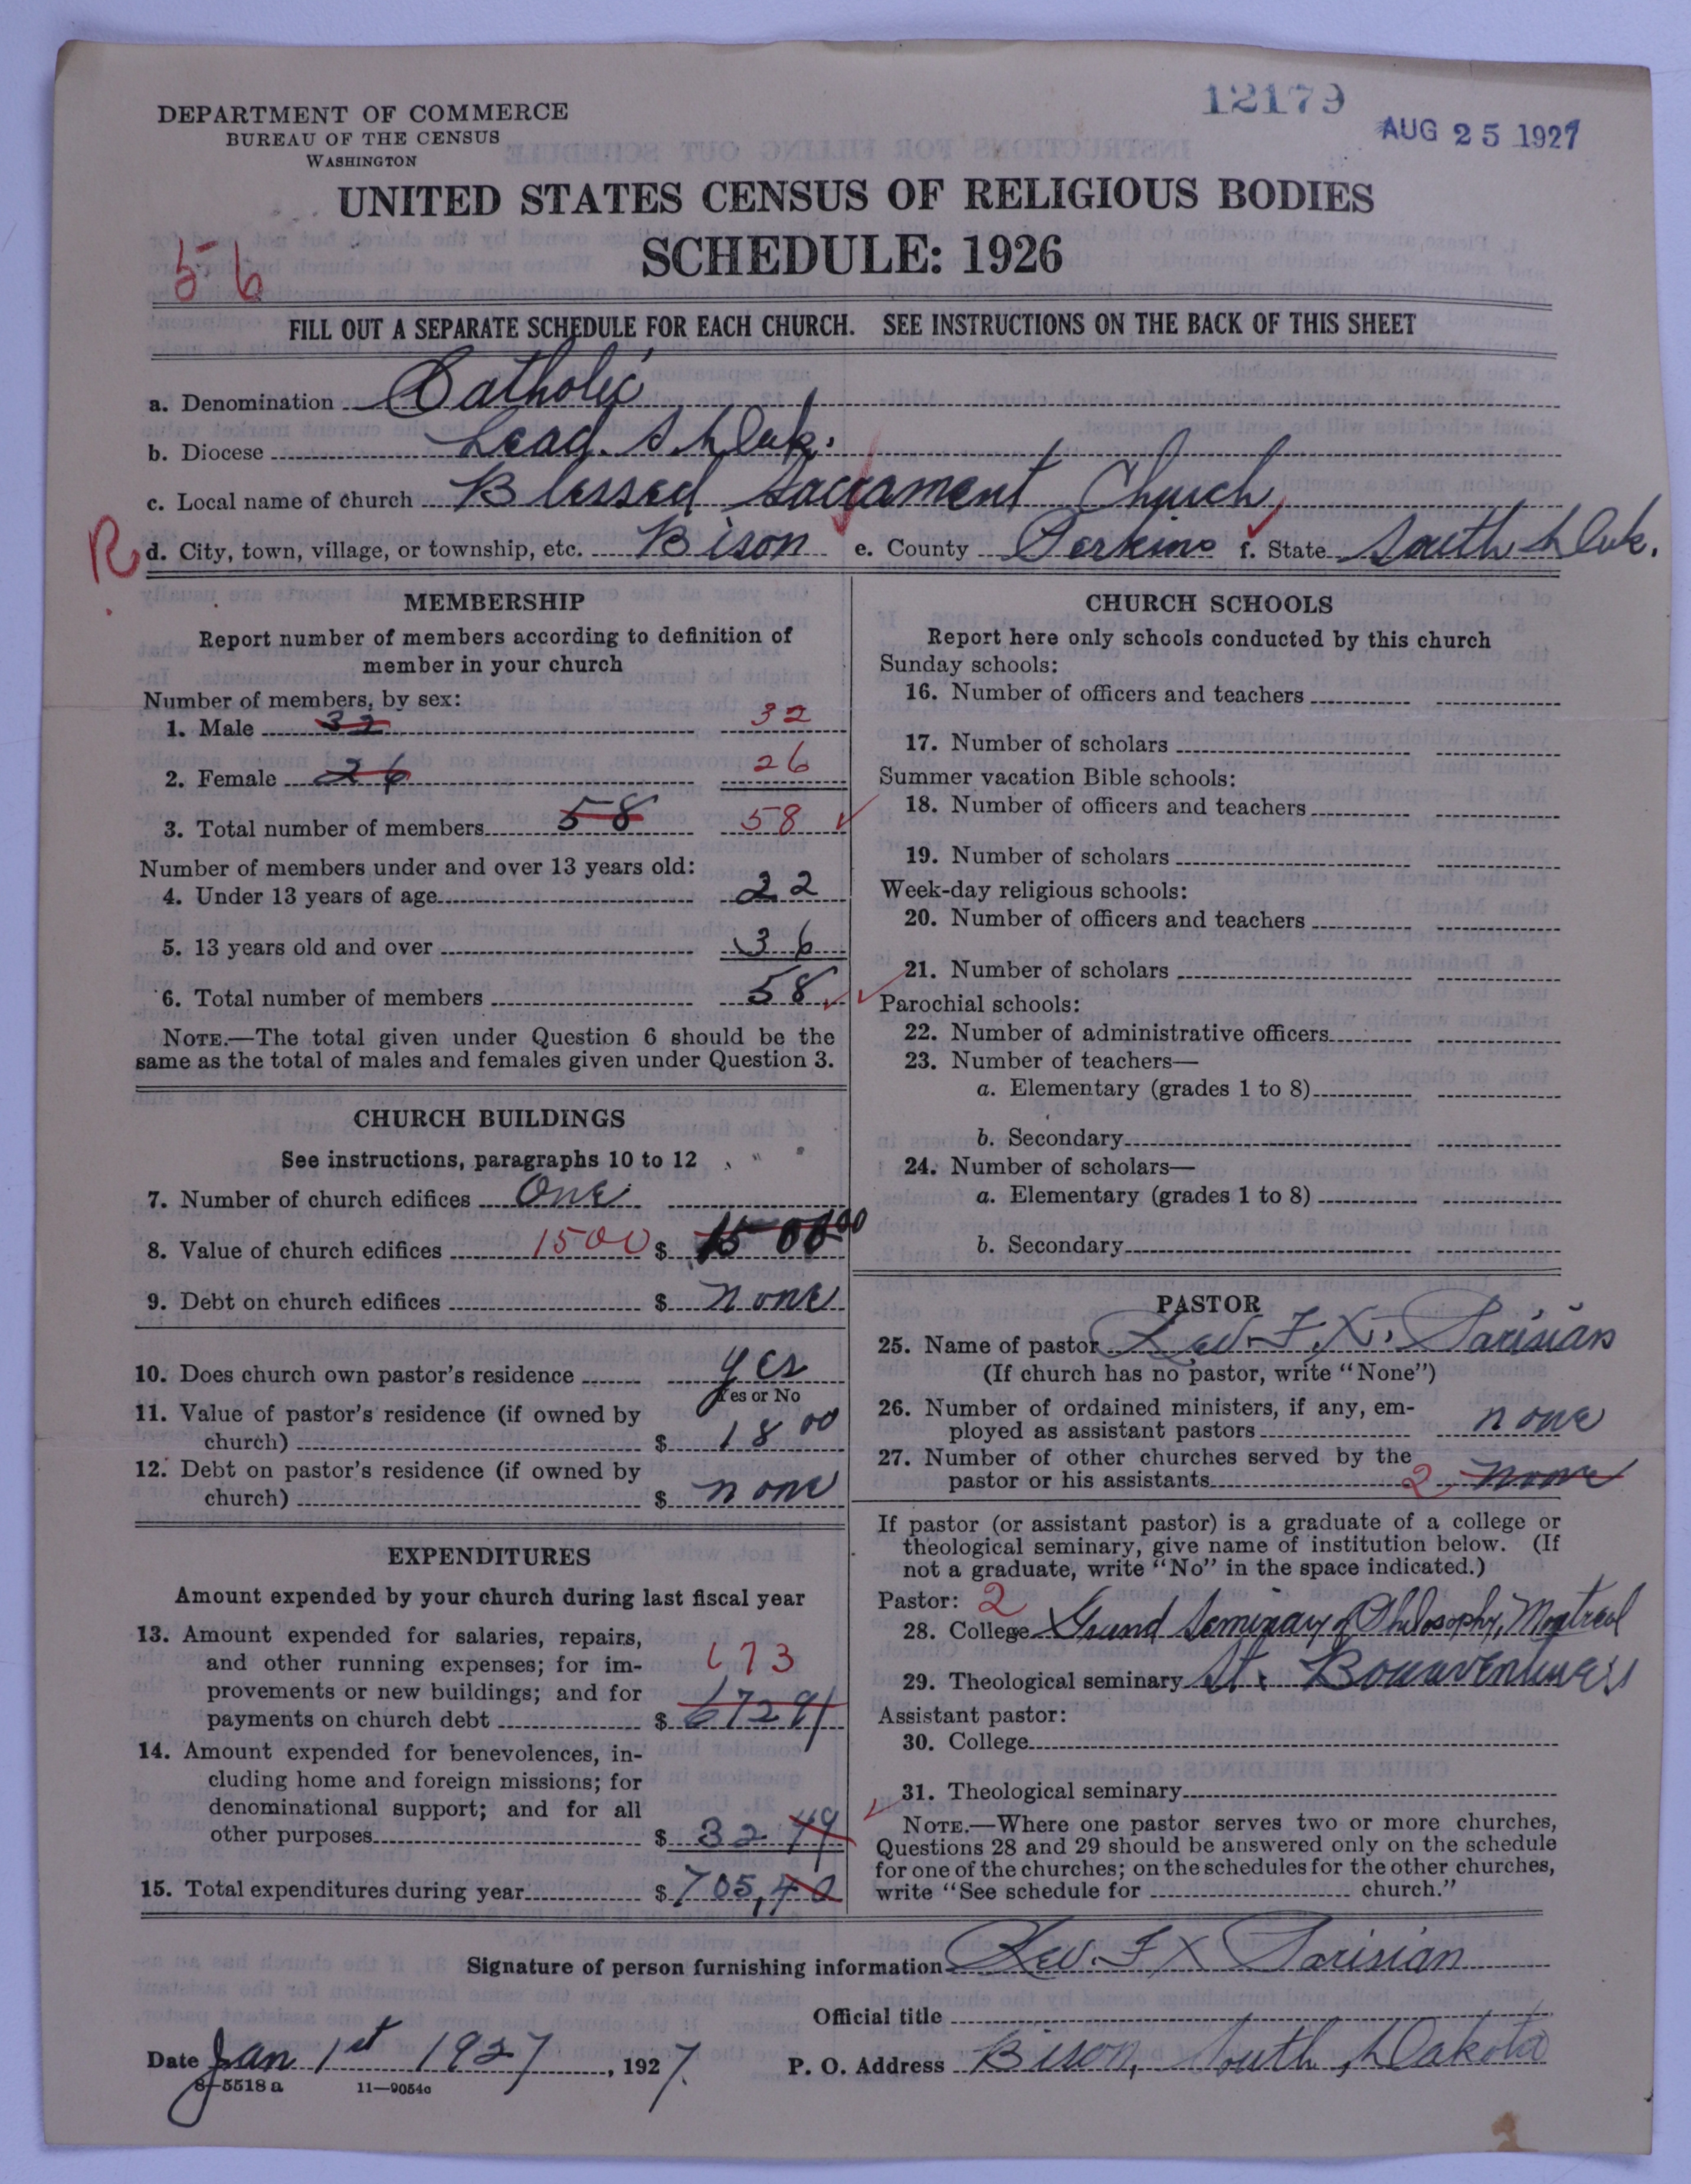 12179
AUG 25 1927
DEPARTMENT OF COMMERCE
BUREAU OF THE CENSUS
WASHINGTON
UNITED STATES CENSUS OF RELIGIOUS BODIES
SCHEDULE: 1926
56
FILL OUT A SEPARATE SCHEDULE FOR EACH CHURCH. SEE INSTRUCTIONS ON THE BACK OF THIS SHEET
a. Denomination Catholic
b. Diocese Lead. S. Dak.
c. Local name of church Blessed Sacrament Church
R d. City, town, village, or township, etc. Bison e. County Perkins f. State South Dak.
MEMBERSHIP
Report number of members according to definition of
member in your church
Number of members, by sex:
1. Male 32 32
2. Female 26 26
3. Total number of members 58 58
Number of members under and over 13 years old:
4. Under 13 years of age 22
5. 13 years old and over 36
6. Total number of members 58
NOTE.—The total given under Question 6 should be the
same as the total of males and females given under Question 3.
CHURCH BUILDINGS
See instructions, paragraphs 10 to 12
7. Number of church edifices One
8. Value of church edifices 1500 $ 1500 00
9. Debt on church edifices $ none
10. Does church own pastor's residence yes
Yes or No
11. Value of pastor's residence (if owned by
church) $ 18 00
12. Debt on pastor's residence (if owned by
church) $ none
EXPENDITURES
Amount expended by your church during last fiscal year
13. Amount expended for salaries, repairs,
and other running expenses; for im-
provements or new buildings; and for
payments on church debt $ 673 672 91
14. Amount expended for benevolences, in-
cluding home and foreign missions; for
denominational support; and for all
other purposes $ 32 49
15. Total expenditures during year $ 705,40
CHURCH SCHOOLS
Report here only schools conducted by this church
Sunday schools:
16. Number of officers and teachers
17. Number of scholars
Summer vacation Bible schools:
18. Number of officers and teachers
19. Number of scholars
Week-day religious schools:
20. Number of officers and teachers
21. Number of scholars
Parochial schools:
22. Number of administrative officers
23. Number of teachers—
a. Elementary (grades 1 to 8)
b. Secondary
24. Number of scholars—
a. Elementary (grades 1 to 8)
b. Secondary
PASTOR
25. Name of pastor Rev. F. X. Parisian
(If church has no pastor, write "None")
26. Number of ordained ministers, if any, em-
ployed as assistant pastors none
27. Number of other churches served by the
pastor or his assistants 2 none
If pastor (or assistant pastor) is a graduate of a college or
theological seminary, give name of institution below. (If
not a graduate, write "No" in the space indicated.)
Pastor: 2
28. College Grand Seminary of Philosophy, Montreal
29. Theological seminary St. Bonaventure's
Assistant pastor:
30. College
31. Theological seminary
NOTE.—Where one pastor serves two or more churches,
Questions 28 and 29 should be answered only on the schedule
for one of the churches; on the schedules for the other churches,
write "See schedule for church."
Signature of person furnishing information Rev. F X Parisian
Official title
Date Jan 1st 1927, 1927. P. O. Address Bison, South Dakota
8—5518 a 11—9054a